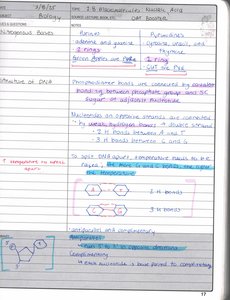 DATE 7/8/25
TOPIC 1.8 Macromolecules: Nucleic Acid
SUBJECT Biology
SOURCE UAT Booster
Nitrogenous Bases
Purines
Pyrimidines
adenine and guanine
cytosine, uracil, and
thymine
2 rings
1 ring
Structure of DNA
Phosphodiester bonds are connected by covalent
bonding between phosphate group and 5C
sugar of adjacent nucleotide
Nucleotides on opposite strands are connected
by weak hydrogen bonds → double strand
• 2 H bonds between A and T
• 3 H bonds between C and G
↑ temperature to break
apart
To split DNA apart, temperature needs to be
raised.
the temperature
A
T
2 H bonds
C
G
3 H bonds
• antiparallel and complimentary
Antiparallel
in opposite directions
Complimentary
↳ each nucleotide is base paired to complimentary
17